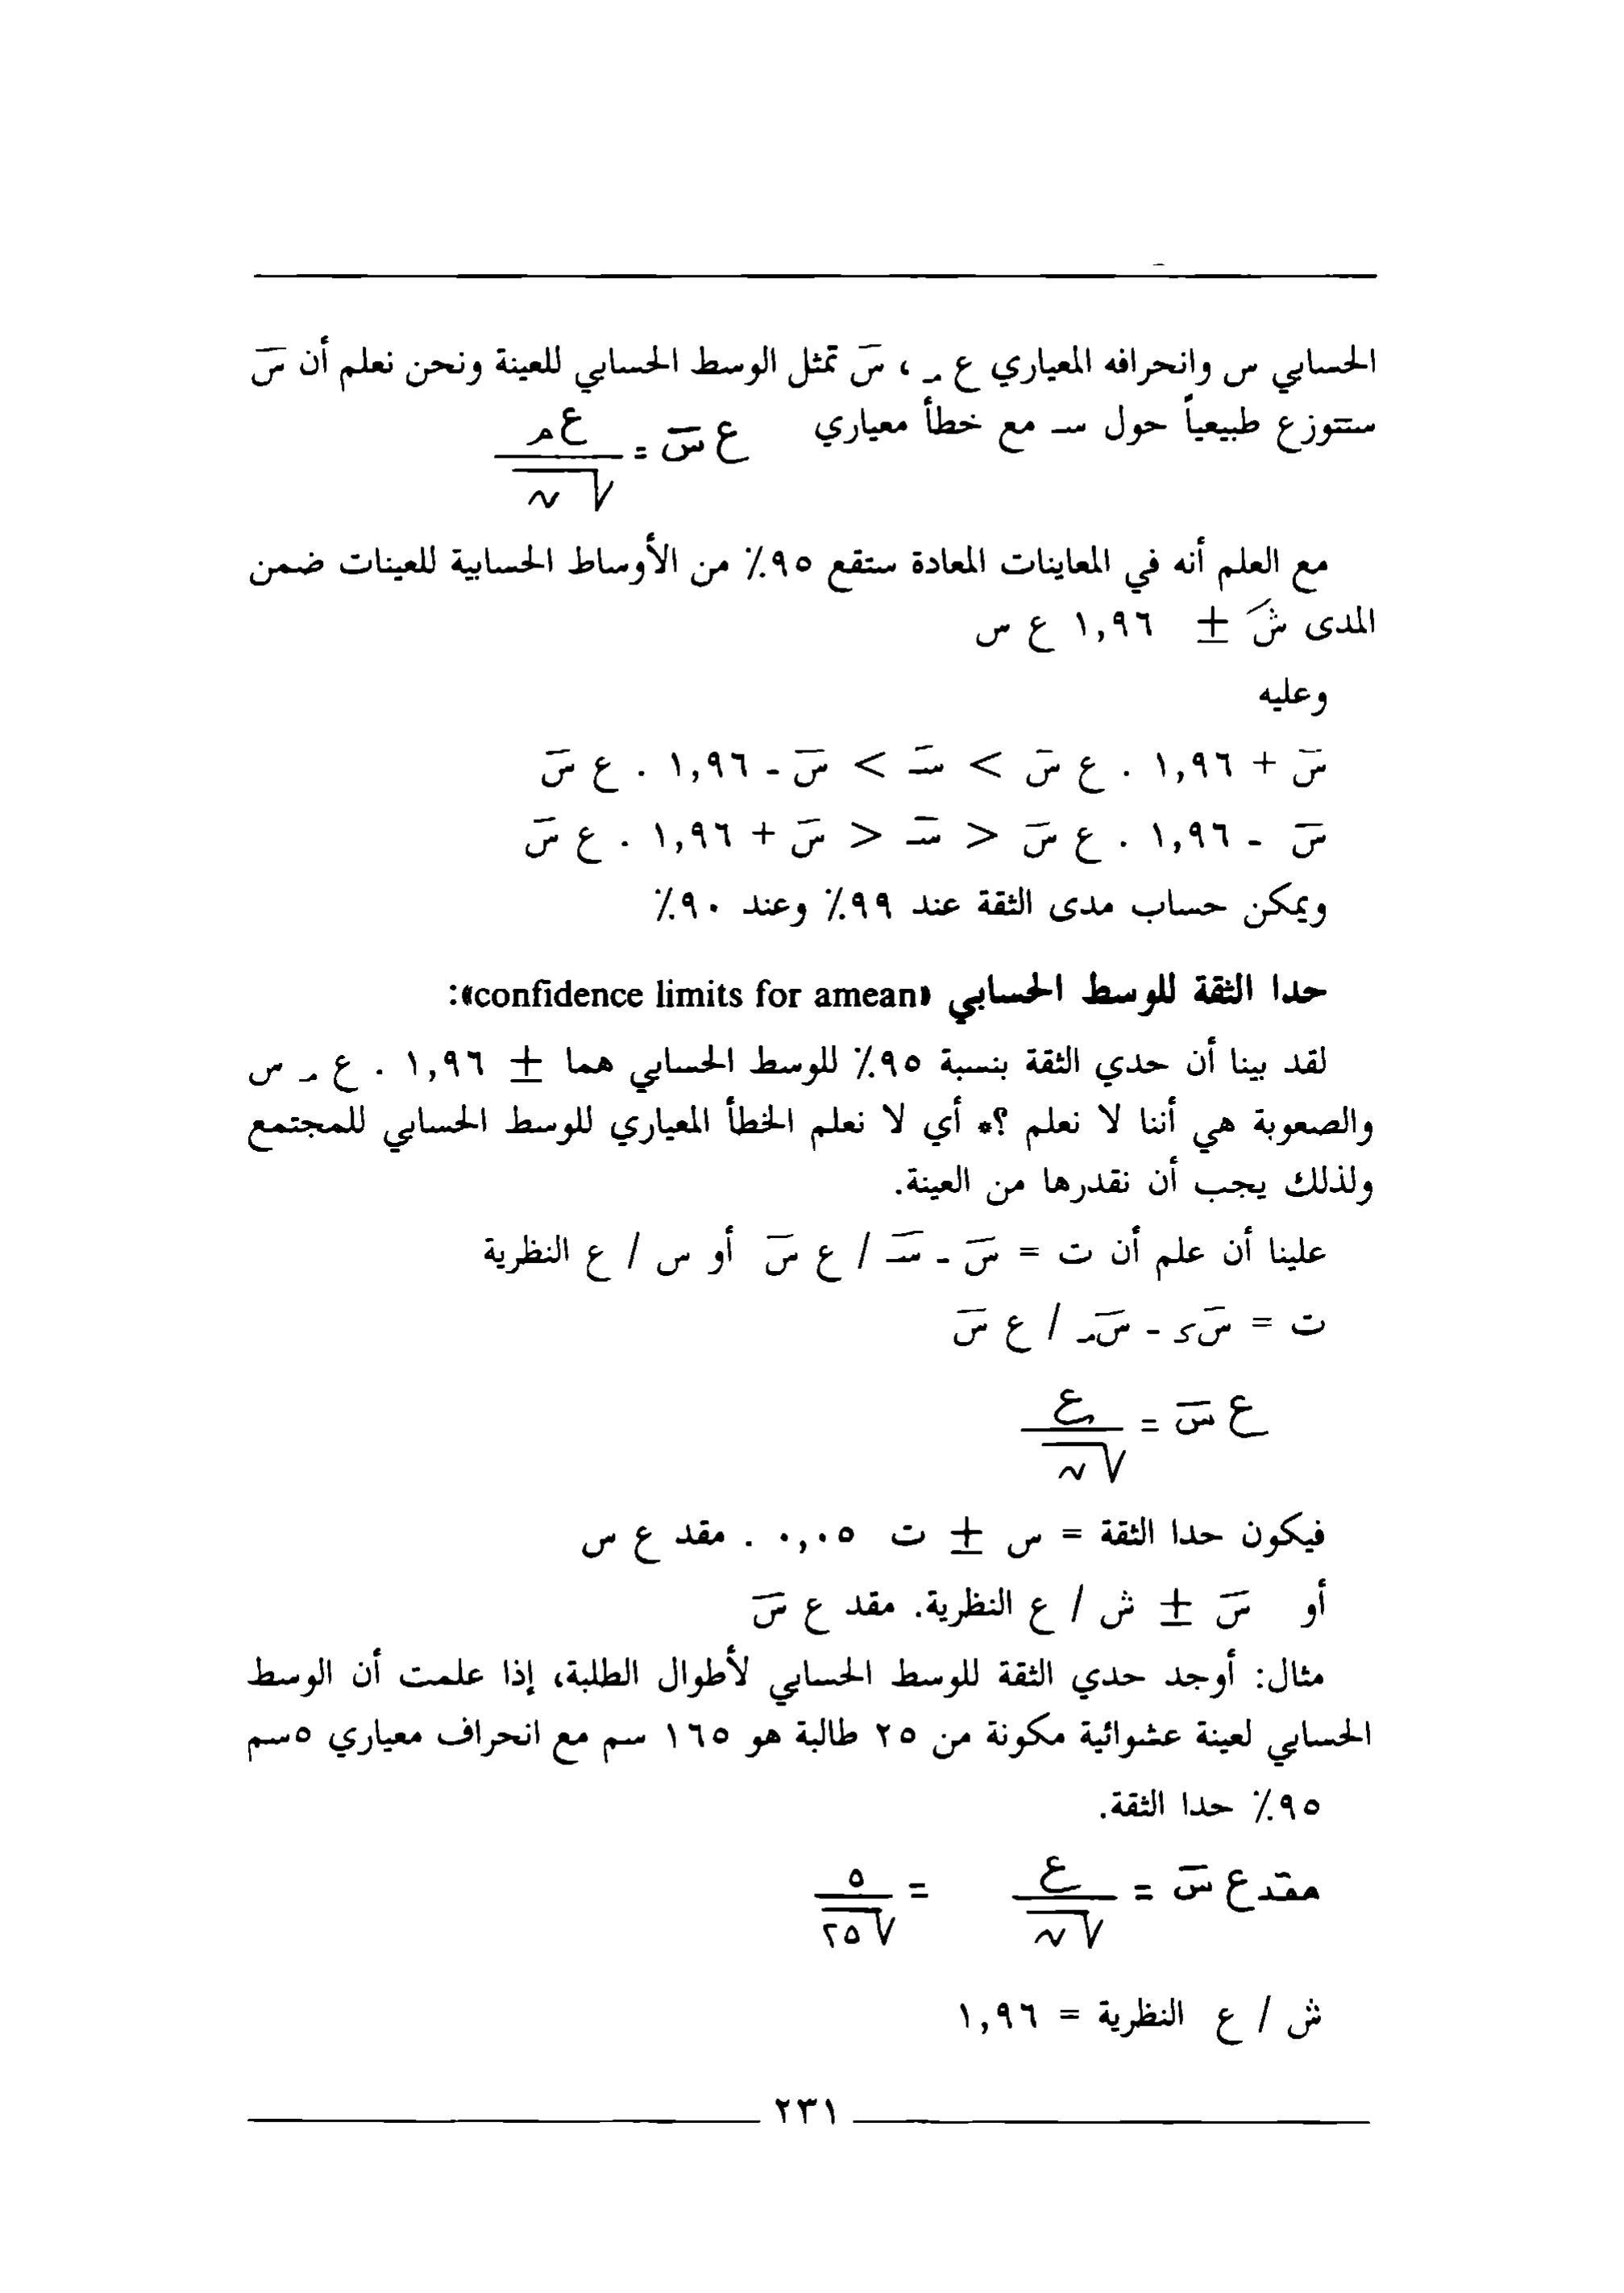 الحسابي س وانحرافه المعياري ع م ، سَ تمثل الوسط الحسابي للعينة ونحن نعلم أن سَ
ستتوزع طبيعياً حول سـ مع خطأ معياري ع سَ = ع م / √ن
مع العلم أنه في المعاينات المعادة ستقع ٩٥٪ من الأوساط الحسابية للعينات ضمن
المدى شَ ± ١,٩٦ ع س
وعليه
سَ + ١,٩٦ . ع سَ > سـَ > سَ - ١,٩٦ . ع سَ
سَ - ١,٩٦ . ع سَ < سـَ < سَ + ١,٩٦ . ع سَ
ويمكن حساب مدى الثقة عند ٩٩٪ وعند ٩٠٪
حدا الثقة للوسط الحسابي «confidence limits for amean»:
لقد بينا أن حدي الثقة بنسبة ٩٥٪ للوسط الحسابي هما ± ١,٩٦ . ع م س
والصعوبة هي أننا لا نعلم ؟* أي لا نعلم الخطأ المعياري للوسط الحسابي للمجتمع
ولذلك يجب أن نقدرها من العينة.
علينا أن علم أن ت = سَ - سـَ / ع سَ أو س / ع النظرية
ت = سَ ى - سَ م / ع سَ
ع سَ = ع / √ن
فيكون حدا الثقة = س ± ت ٠,٠٥ . مقد ع س
أو سَ ± ش / ع النظرية. مقد ع سَ
مثال: أوجد حدي الثقة للوسط الحسابي لأطوال الطلبة، إذا علمت أن الوسط
الحسابي لعينة عشوائية مكونة من ٢٥ طالبة هو ١٦٥ سم مع انحراف معياري ٥سم
٩٥٪ حدا الثقة.
مقد ع سَ = ع / √ن = ٥ / √٢٥
ش / ع النظرية = ١,٩٦
٢٣١